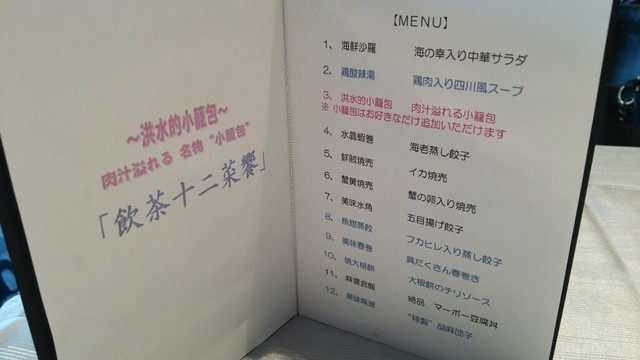 ～洪水的小籠包～
肉汁溢れる 名物 "小籠包"
「飲茶十二菜饗」
【MENU】
1、 海鮮沙羅 海の幸入り中華サラダ
2、 鶏酸辣湯 鶏肉入り四川風スープ
3、 洪水的小籠包 肉汁溢れる小籠包
※ 小籠包はお好きなだけ追加いただけます
4、 水晶蝦巻 海老蒸し餃子
5、 鮮賊焼売 イカ焼売
6、 蟹黄焼売 蟹の卵入り焼売
7、 美味水角 五目揚げ餃子
8、 魚翅蒸餃 フカヒレ入り蒸し餃子
9、 美味春巻 具だくさん春巻き
10、 焼大根餅 大根餅のチリソース
11、 麻婆会飯 絶品 マーボー豆腐丼
12、 美味麻球 "特製" 胡麻団子